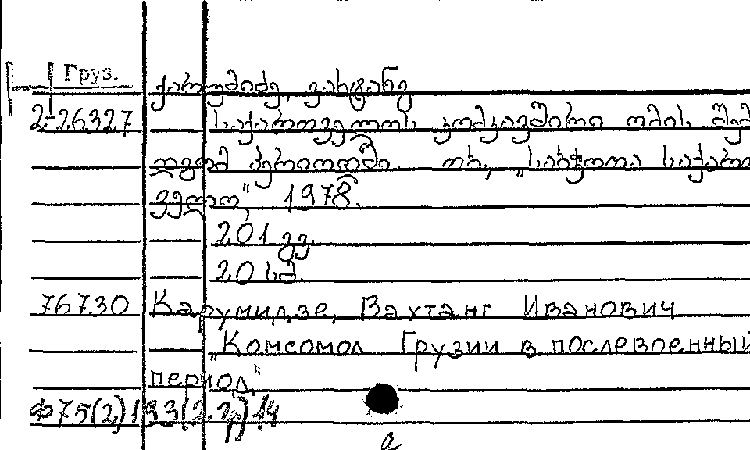 Груз.
ქარუმიძე, ვახტანგ
2-26327 საქართველოს კომკავშირი ომის შემ
დგომ პერიოდში. თბ., „საბჭოთა საქართ
ველო“, 1978.
201 გვ.
20 სმ
76730 Карумидзе, Вахтанг Иванович
„Комсомол Грузии в послевоенный
период“
Ф75(2)133(2.2р)14
а